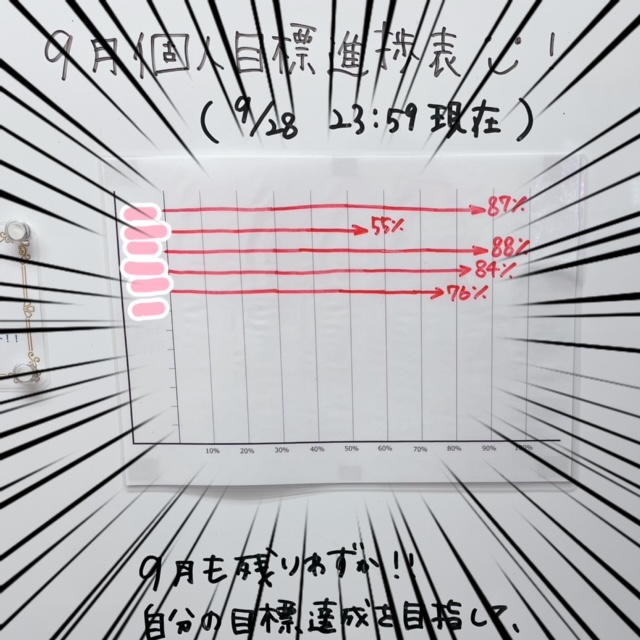 9月個人目標進捗表じ!
(9/28 23:59現在)
87%
55%
88%
84%
76%
10% 20% 30% 40% 50% 60% 70% 80% 90% 100%
9月も残りわずか!!
自分の目標達成を目指して、